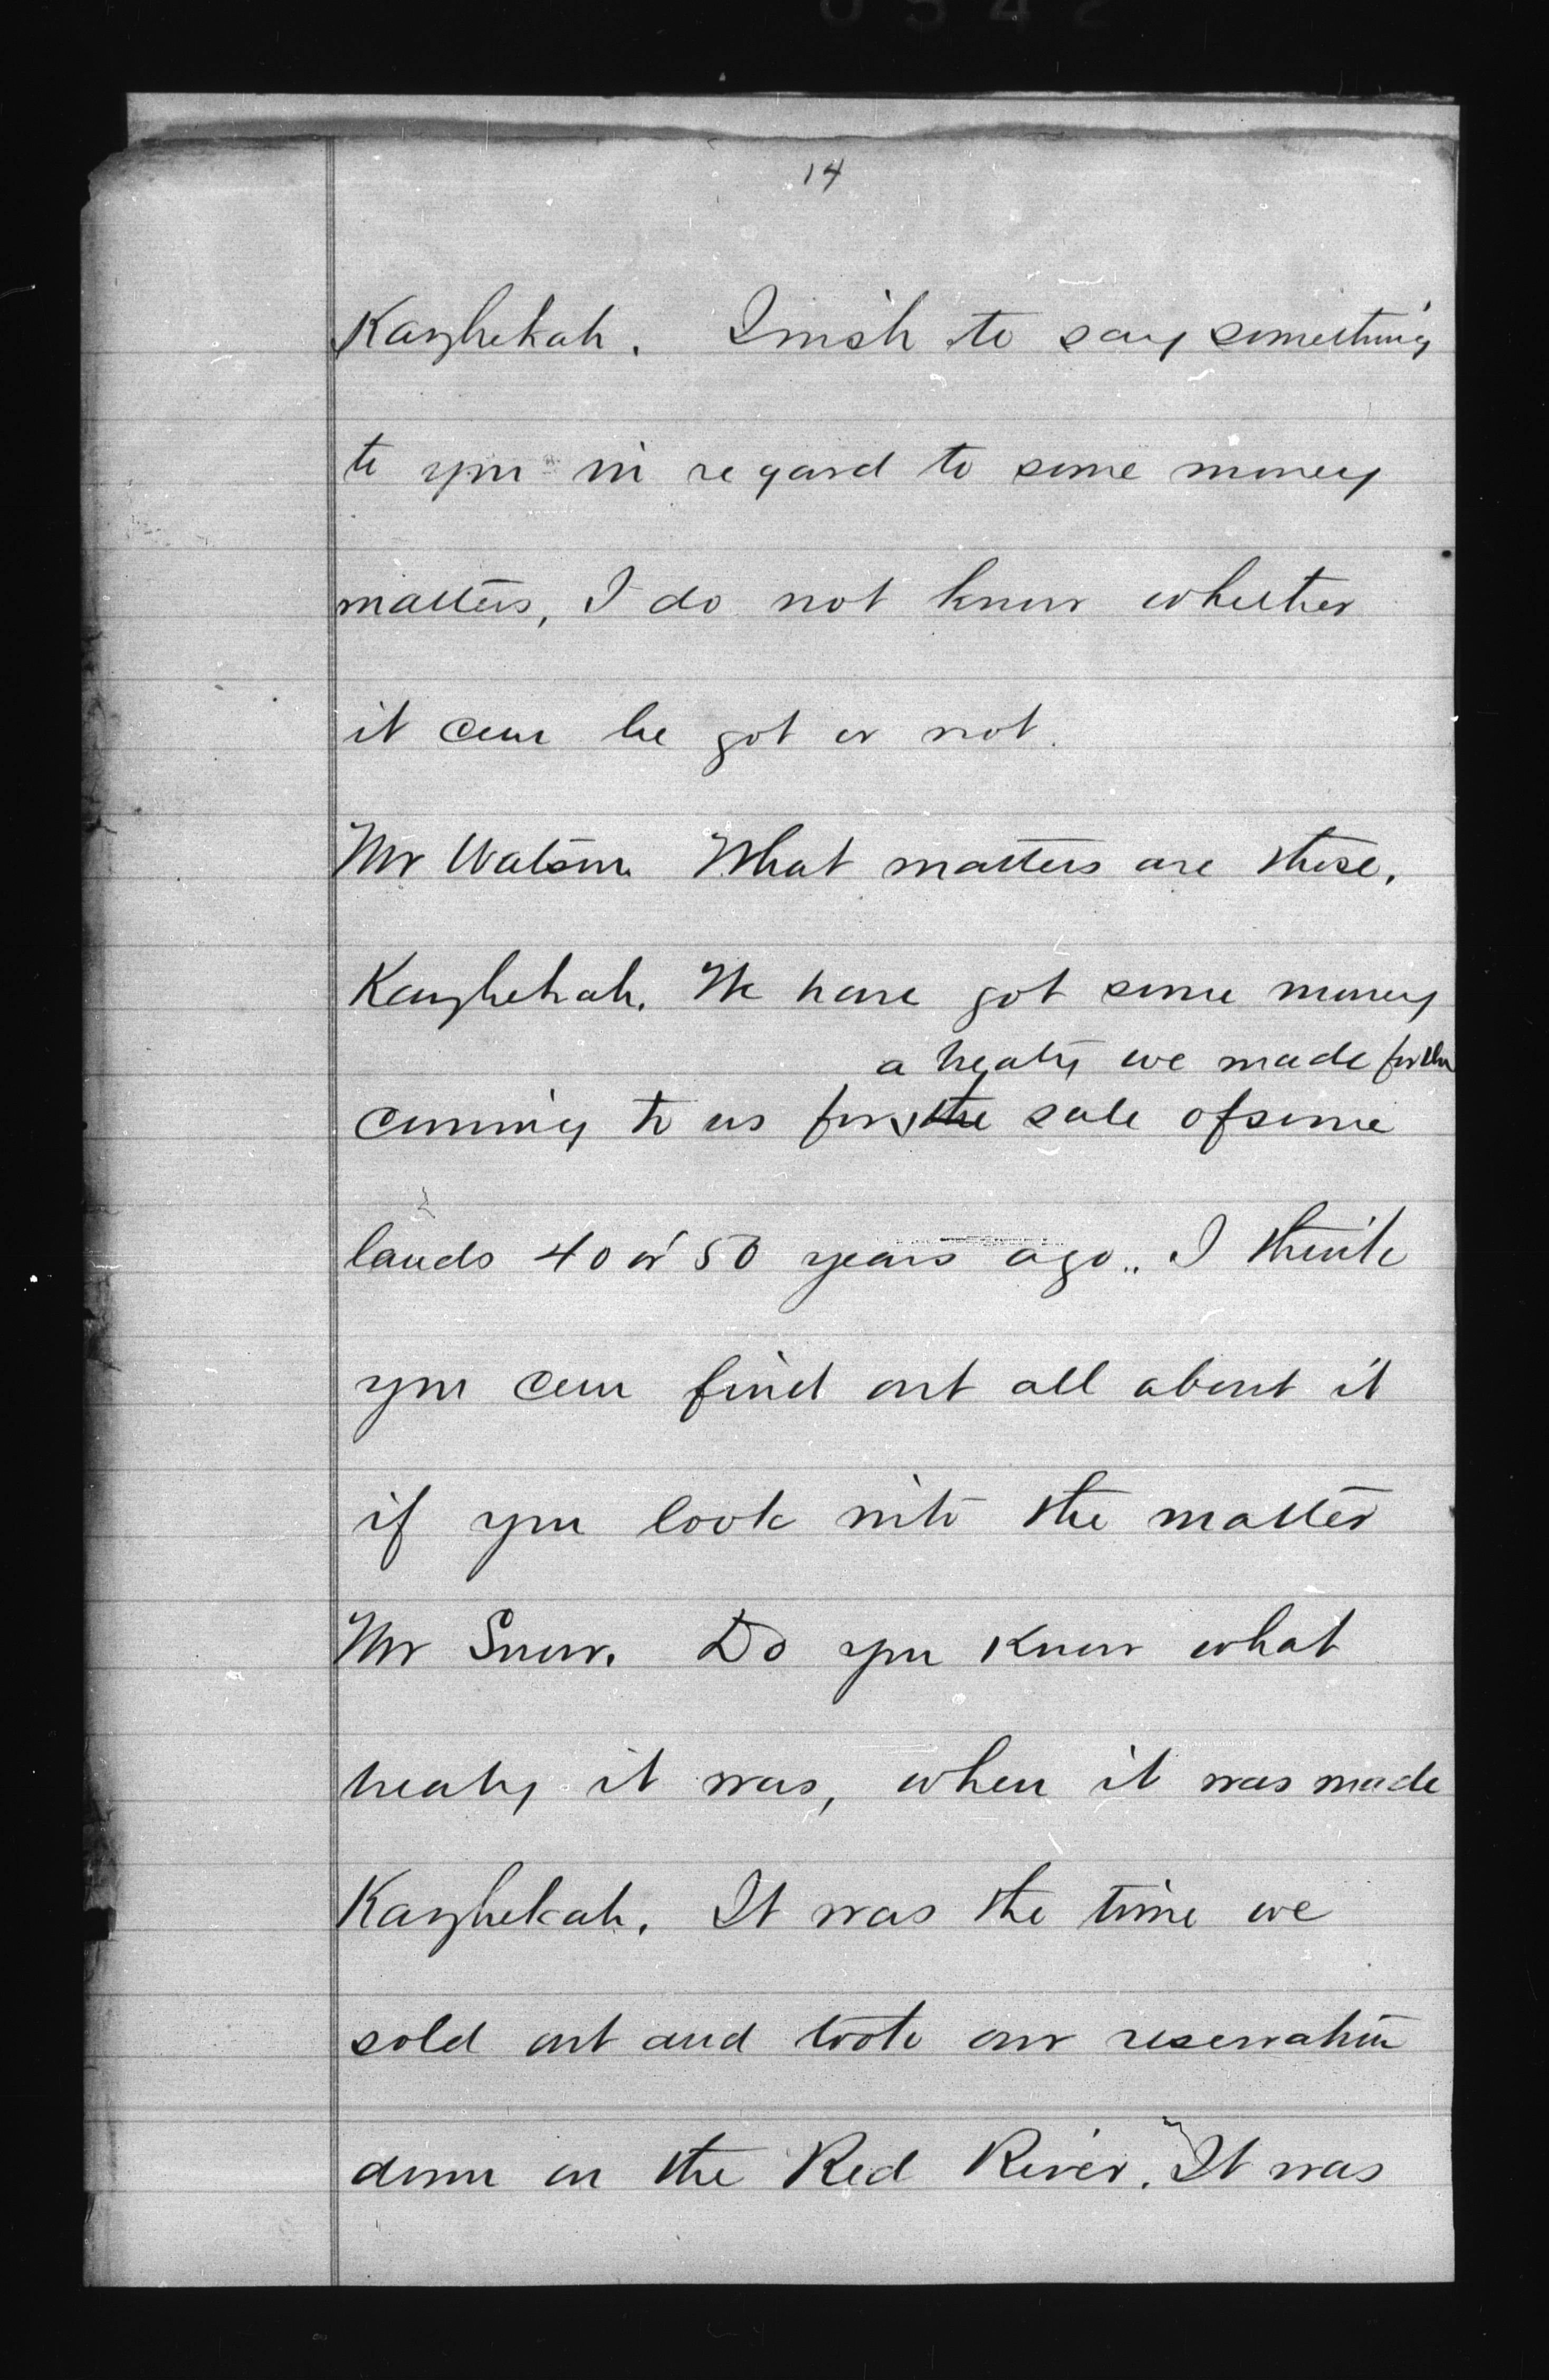 14
Kayhekah. I wish to say something
to you in regard to some money
matters, I do not know whether
it can be got or not.
Mr Watson. What matters are these.
Kayhekah. We have got some money
a treaty we made for the
coming to us for the sale of some
lands 40 or 50 years ago.. I think
you can find out all about it
if you look into the matter
Mr Snow. Do you know what
treaty it was, when it was made
Kayhekah. It was the time we
sold out and took our reservation
down on the Red River. It was